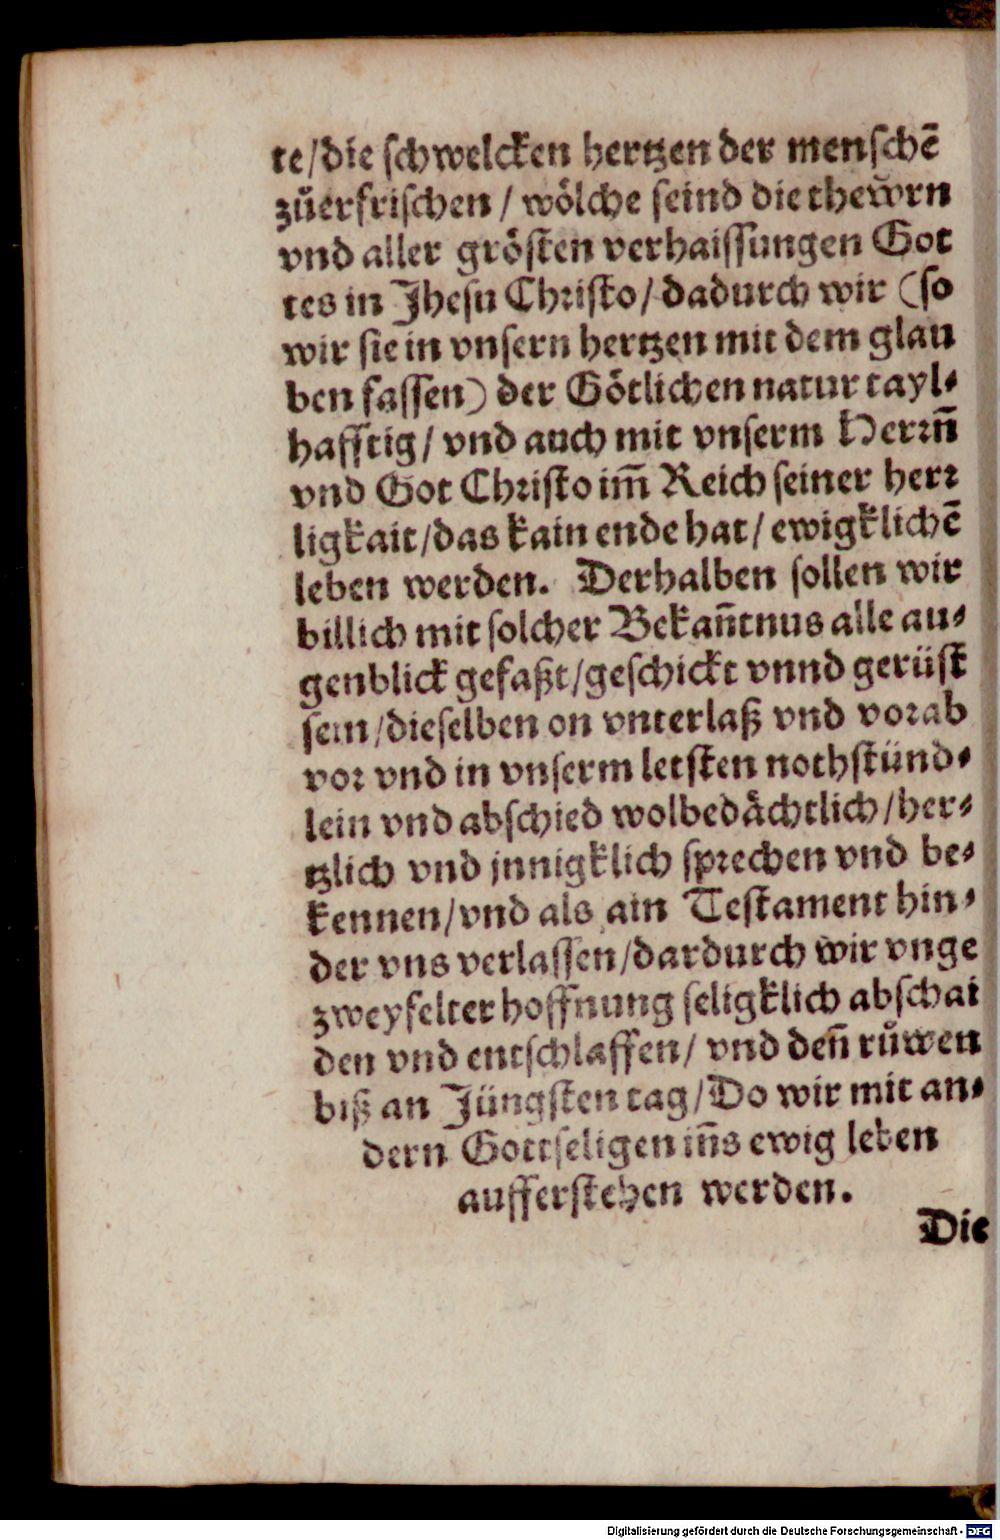 te/die schwelcken hertzen der menschē
zůerfrischen / wölche seind die thewrn
vnd aller grösten verhaissungen Got
tes in Jhesu Christo/ dadurch wir (so
wir sie in vnsern hertzen mit dem glau
ben fassen) der Götlichen natur tayl-
hafftig/ vnd auch mit vnserm Herrn̄
vnd Got Christo im̄ Reich seiner herr
ligkait/das kain ende hat/ ewigklichē
leben werden. Derhalben sollen wir
billich mit solcher Bekan̄tnus alle au-
genblick gefaßt/geschickt vnnd gerüst
sein/dieselben on vnterlaß vnd vorab
vor vnd in vnserm letsten nothstünd-
lein vnd abschied wolbedächtlich/her-
tzlich vnd jnnigklich sprechen vnd be-
kennen/vnd als ain Testament hin-
der vns verlassen/dardurch wir vnge
zweyfelter hoffnung seligklich abschai
den vnd entschlaffen/ vnd den̄ růwen
biß an Jüngsten tag/Do wir mit an-
dern Gottseligen in̄s ewig leben
aufferstehen werden.
Die
Digitalisierung gefördert durch die Deutsche Forschungsgemeinschaft - DFG